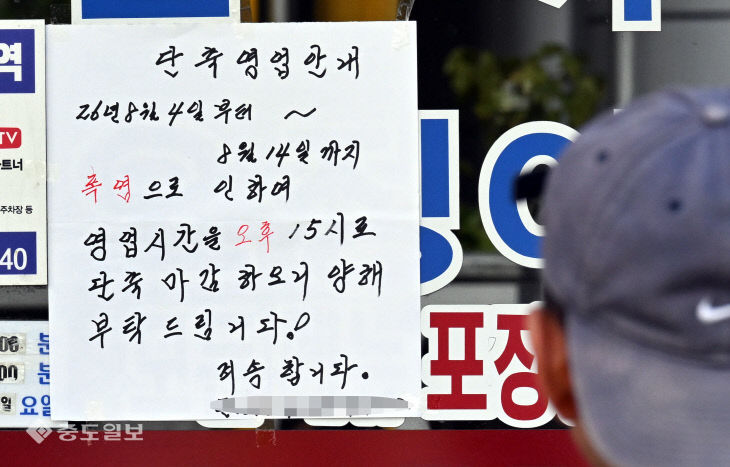 단축영업안내
26년8월4일부터 ~
8월14일까지
폭염으로 인하여
영업시간을 오후 15시로
단축 마감 하오니 양해
부탁드립니다.!
죄송합니다.
역
TV
트너
주차장 등
40
분
분
요일
영
포장
중도일보